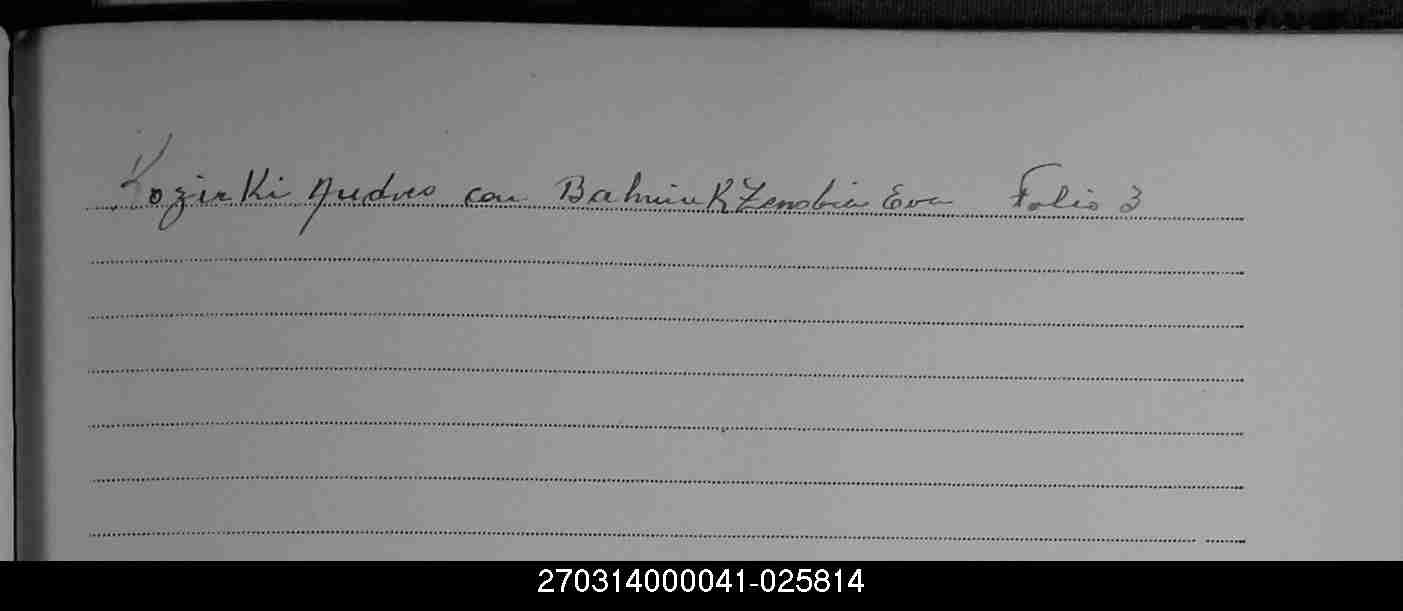 Kozirki Andres con Bahniuk Zenobia Eva Folio 3
270314000041-025814